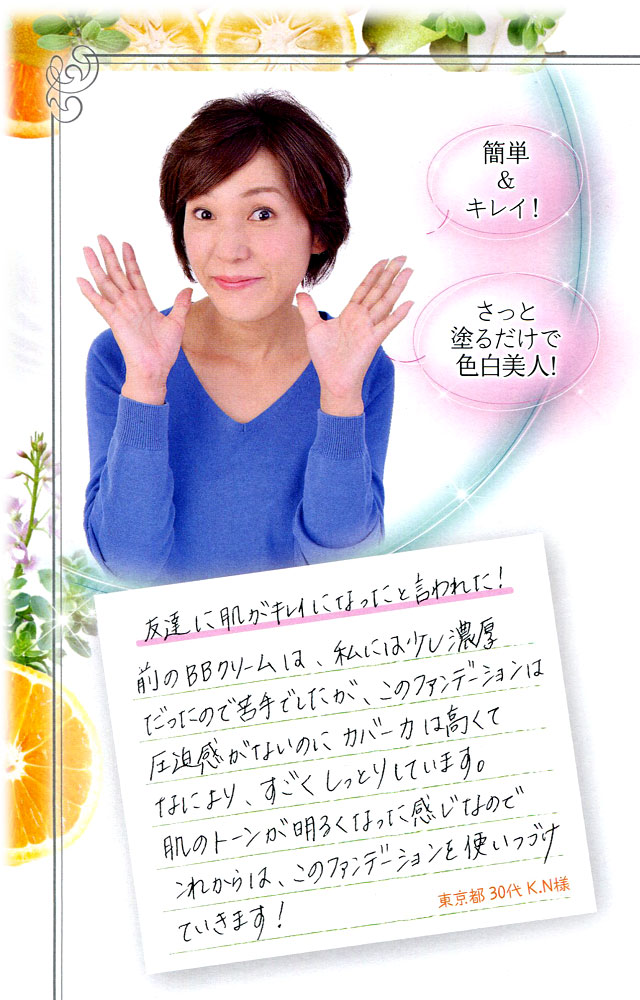 簡単
&
キレイ!
さっと
塗るだけで
色白美人!
友達に肌がキレイになったと言われた!
前のBBクリームは、私には少し濃厚
だったので苦手でしたが、このファンデーションは
圧迫感がないのにカバー力は高くて
なにより、すごくしっとりしています。
肌のトーンが明るくなった感じなので
これからは、このファンデーションを使いつづけ
ていきます!
東京都 30代 K.N様